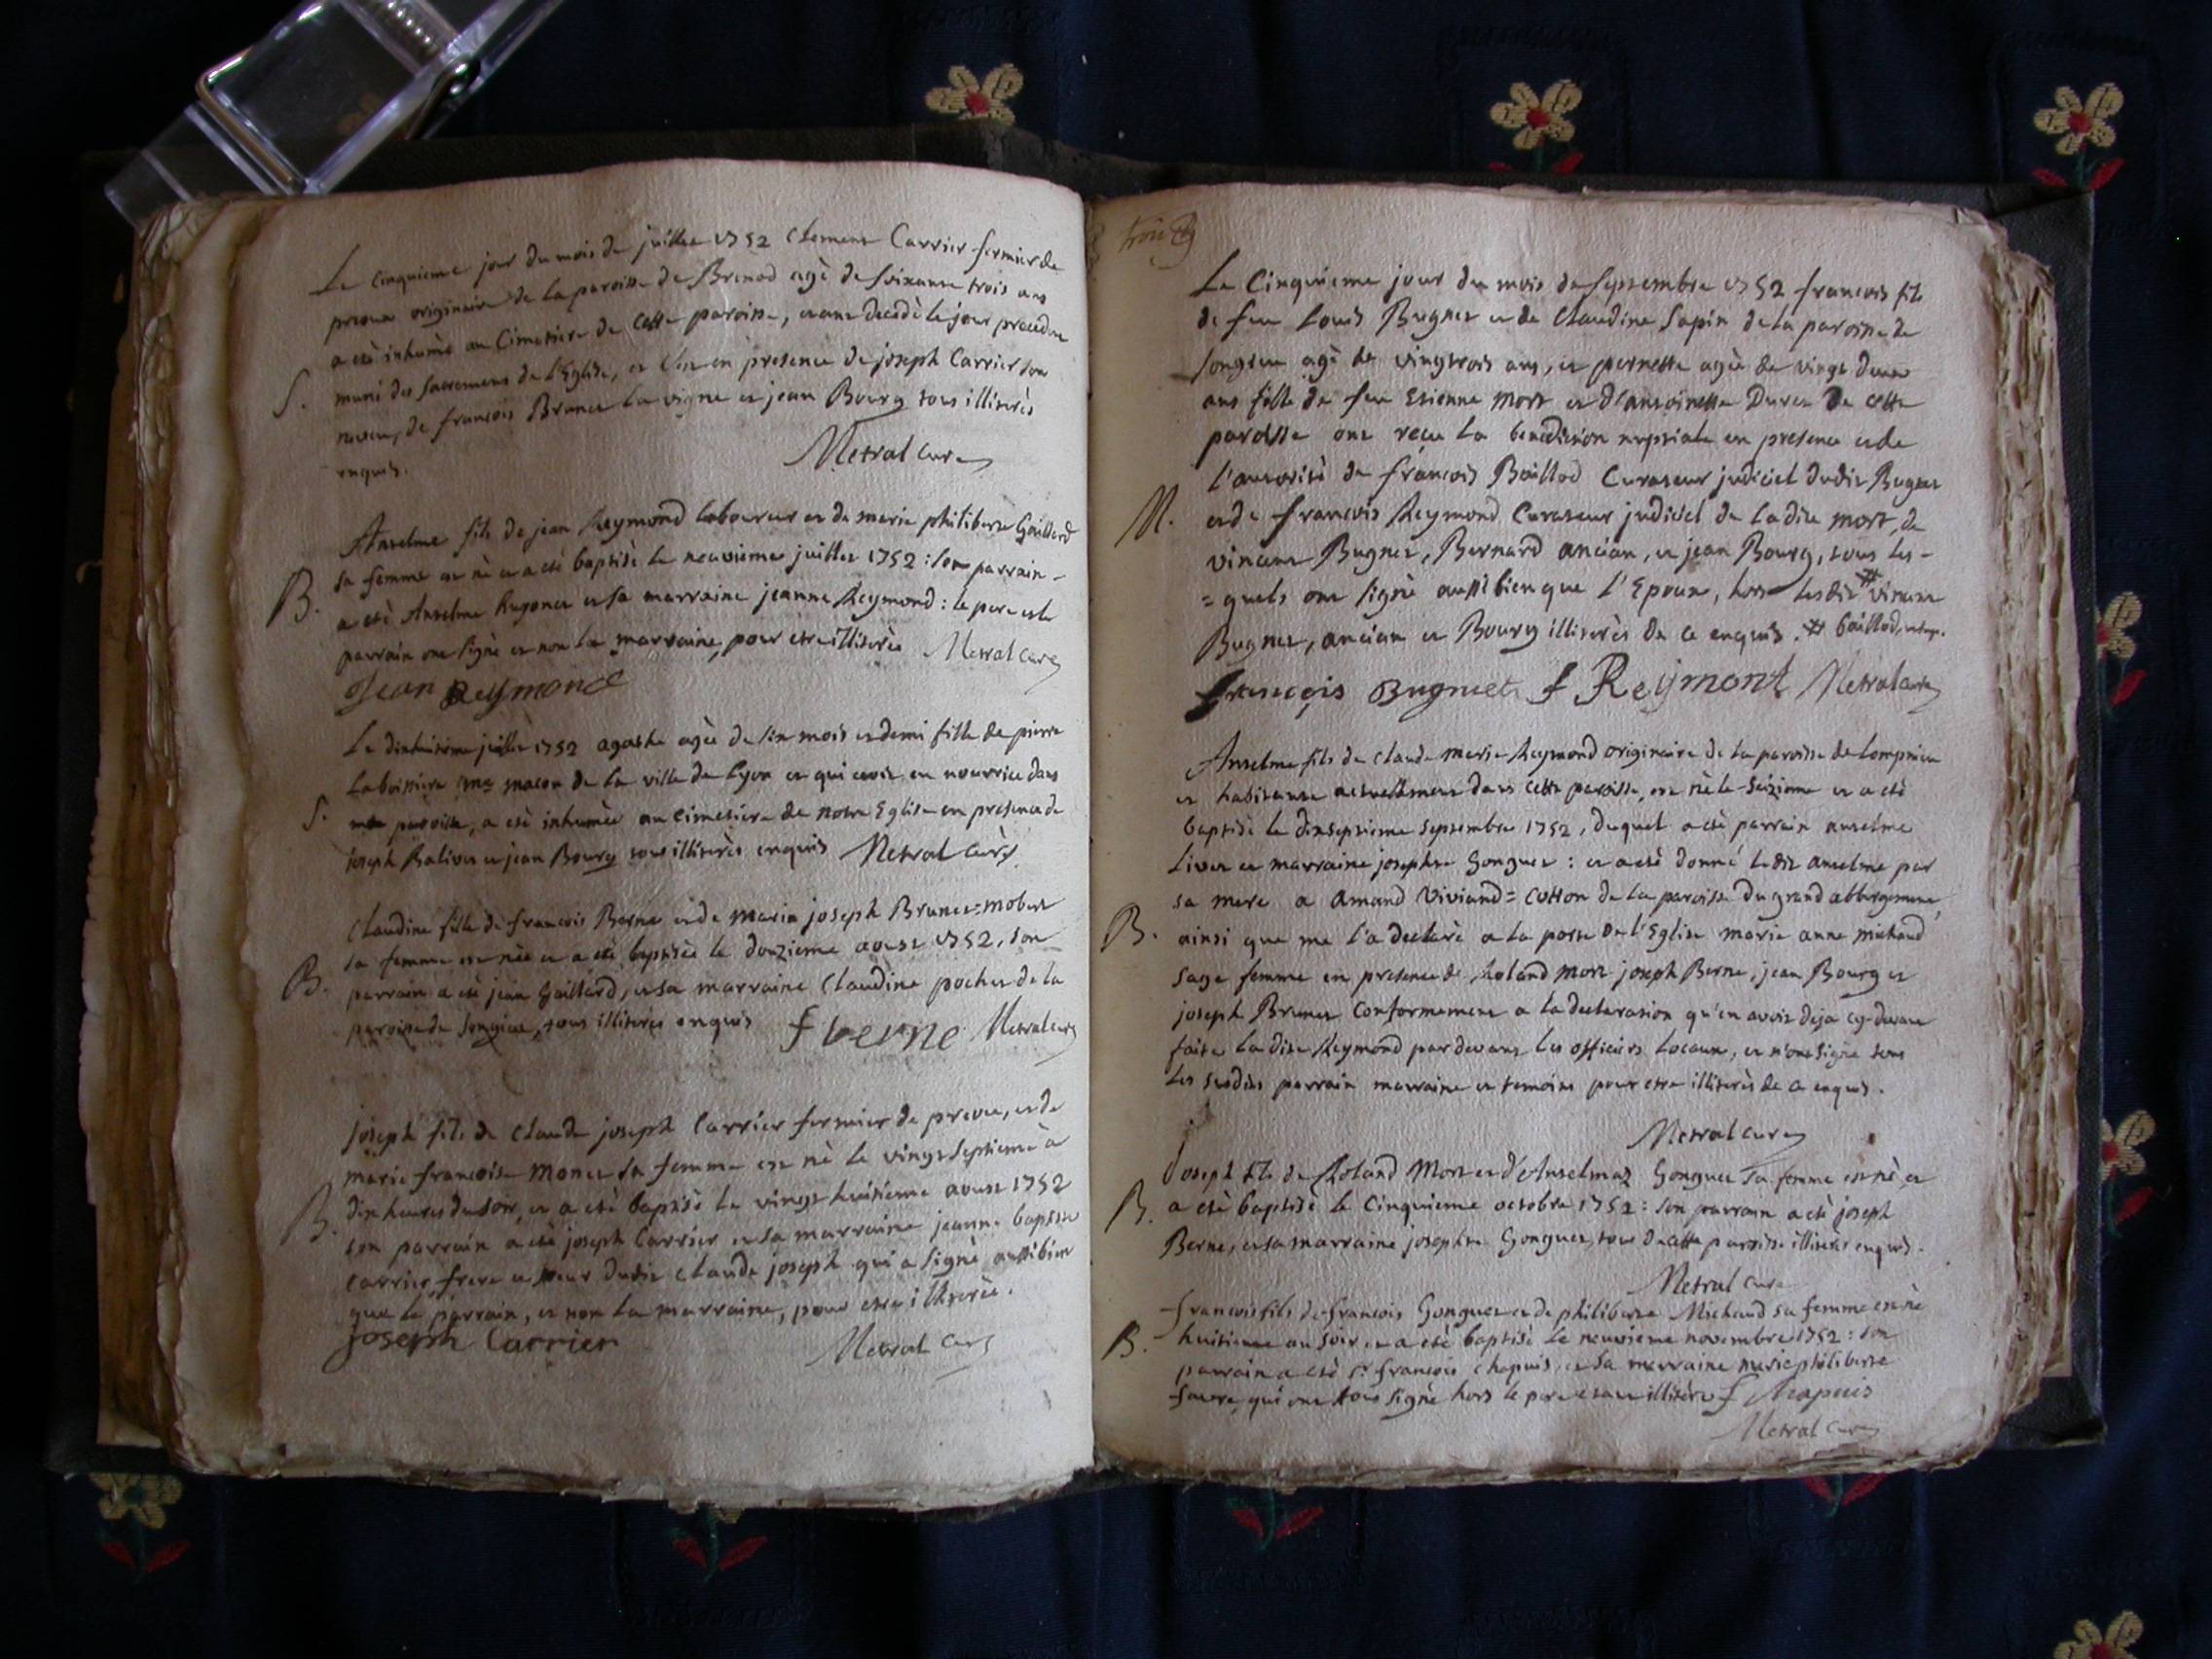 Le cinquieme jour du mois de juillet 1752 Clement Carrier fermier de
originaire de la paroisse de Brenod agè de soixante trois ans
a etè inhumè au Cimetiere de cette paroisse, etant decedè le jour precedent
S. muni des sacremens de l'Eglise, et c'est en presence de joseph Carrier son
neveu, de françois Brunet la vigne et jean Bourg tous illiterès
enquis.
Metral curé
Anselme fils de jean Reymond laboureur et de marie philiberte Gaillard
sa femme est nè et a etè baptisè le neuvieme juillet 1752 : son parrain
B. a etè Anselme Hugonet et sa marraine jeanne Reymond : le pere et le
parrain ont signè et non la marraine, pour etre illiterèe Metral curé
Jean Reymond
Le dixhuitieme juillet 1752 agathe agèe de six mois et demi fille de pierre
Laboissiere me macon de la ville de Lyon et qui etoit en nourrice dans
S. paroisse, a etè inhumèe au cimetiere de notre Eglise en presence de
joseph Balivet et jean Bourg tous illiterès enquis Metral curé
Claudine fille de francois Berne et de Marie joseph Brunet=mobert
sa femme est nèe et a etè baptisèe le douzieme aoust 1752, son
B. parrain a etè jean Gaillard, et sa marraine Claudine pochet de la
paroisse de Songieu, tous illiterès enquis f berne Metral curé
joseph fils de Claude joseph Carrier fermier de et de
marie francoise Monet sa femme est nè le vingtseptieme à
B. dix heures du soir, et a etè baptisè le vingt huitieme aoust 1752
son parrain a etè joseph Carrier et sa marraine jeanne baptiste
carrier, frere et soeur dudit claude joseph qui a signè aussibien
que le parrain, et non la marraine, pour etre illiterèe.
joseph Carrier
Metral curé
Le Cinquieme jour du mois de septembre 1752 francois fils
de feu Louis Bugnet et de Claudine Sapin de la paroisse de
Songieu agè de vingttrois ans, et pernette agèe de vingt deux
ans fille de feu Etienne Mort et d'antoinette Duret de cette
paroisse ont reçu la benediction nuptiale en presence et de
l'autoritè de françois Baillod Curateur judiciel dudit Bugnet
M. et de francois Reymond Curateur judiciel de la dite mort, de
vincent Bugnet, Bernard ancian, et jean Bourg, tous les-
=quels ont signè aussibien que l'Epoux, hors lesdit # vincent
Bugnet, ancian et Bourg illiterès de ce enquis. # baillod,
françois Bugnet f Reymont Metral curé
Anselme fils de Claude Marie Reymond originaire de la paroisse de Lompnieu
et habitante actuellement dans cette paroisse, est nè le seizieme et a etè
baptisè le dixseptieme septembre 1752, duquel a etè parrain anselme
Livet et marraine josephte Gonguet : et a etè donné ledit anselme par
sa mere a Amand Viviand=Cotton de la paroisse du grand abbergement,
B. ainsi que me l'a declarè a la porte de l'Eglise marie anne michaud
sage femme en presence de Roland Mort joseph Berne, jean Bourg et
joseph Brunet Conformement a la declaration qu'en avoit deja cy-devant
faite la dite Reymond pardevant les officiers locaux, et n'ont signè tous
les susdits parrain marraine et temoins pour etre illiterès de ce enquis.
Metral curé
Joseph fils de Roland Mort et d'Anselmaz Gonguet sa femme est nè, et
B. a etè baptisè le Cinquieme octobre 1752 : son parrain a etè joseph
Berne, et sa marraine josephte Gonguet, tous de cette paroisse illiterès enquis.
Metral curé
francois fils de francois Gonguet et de philiberte Michaud sa femme est nè
B. huitieme au soir, et a etè baptisè le neuvieme novembre 1752 : son
parrain a etè Sr francois Chapuis, et sa marraine marie philiberte
favre, qui ont tous signè hors le pere etant illiterè f Chapuis
Metral curé